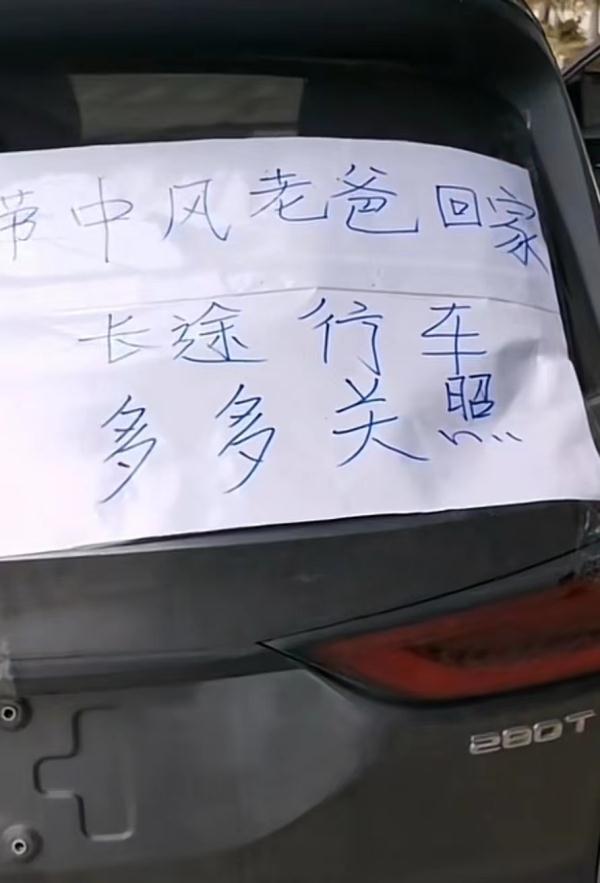 带中风老爸回家
长途行车
多多关照
280T